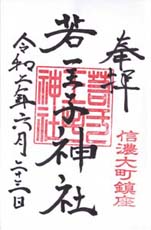 奉拝
信濃大町鎮座
若一王子神社
若一王子神社
令和六年六月二十三日